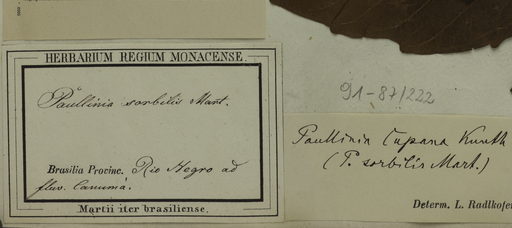 HERBARIUM REGIUM MONACENSE.
Paullinia sorbilis Mart.
Brasilia Provinc. Rio Negro ad
fluv. Canumá.
Martii iter brasiliense.
91-87/222
Paullinia Cupana Kunth
(P. sorbilis Mart.)
Determ. L. Radlkofer